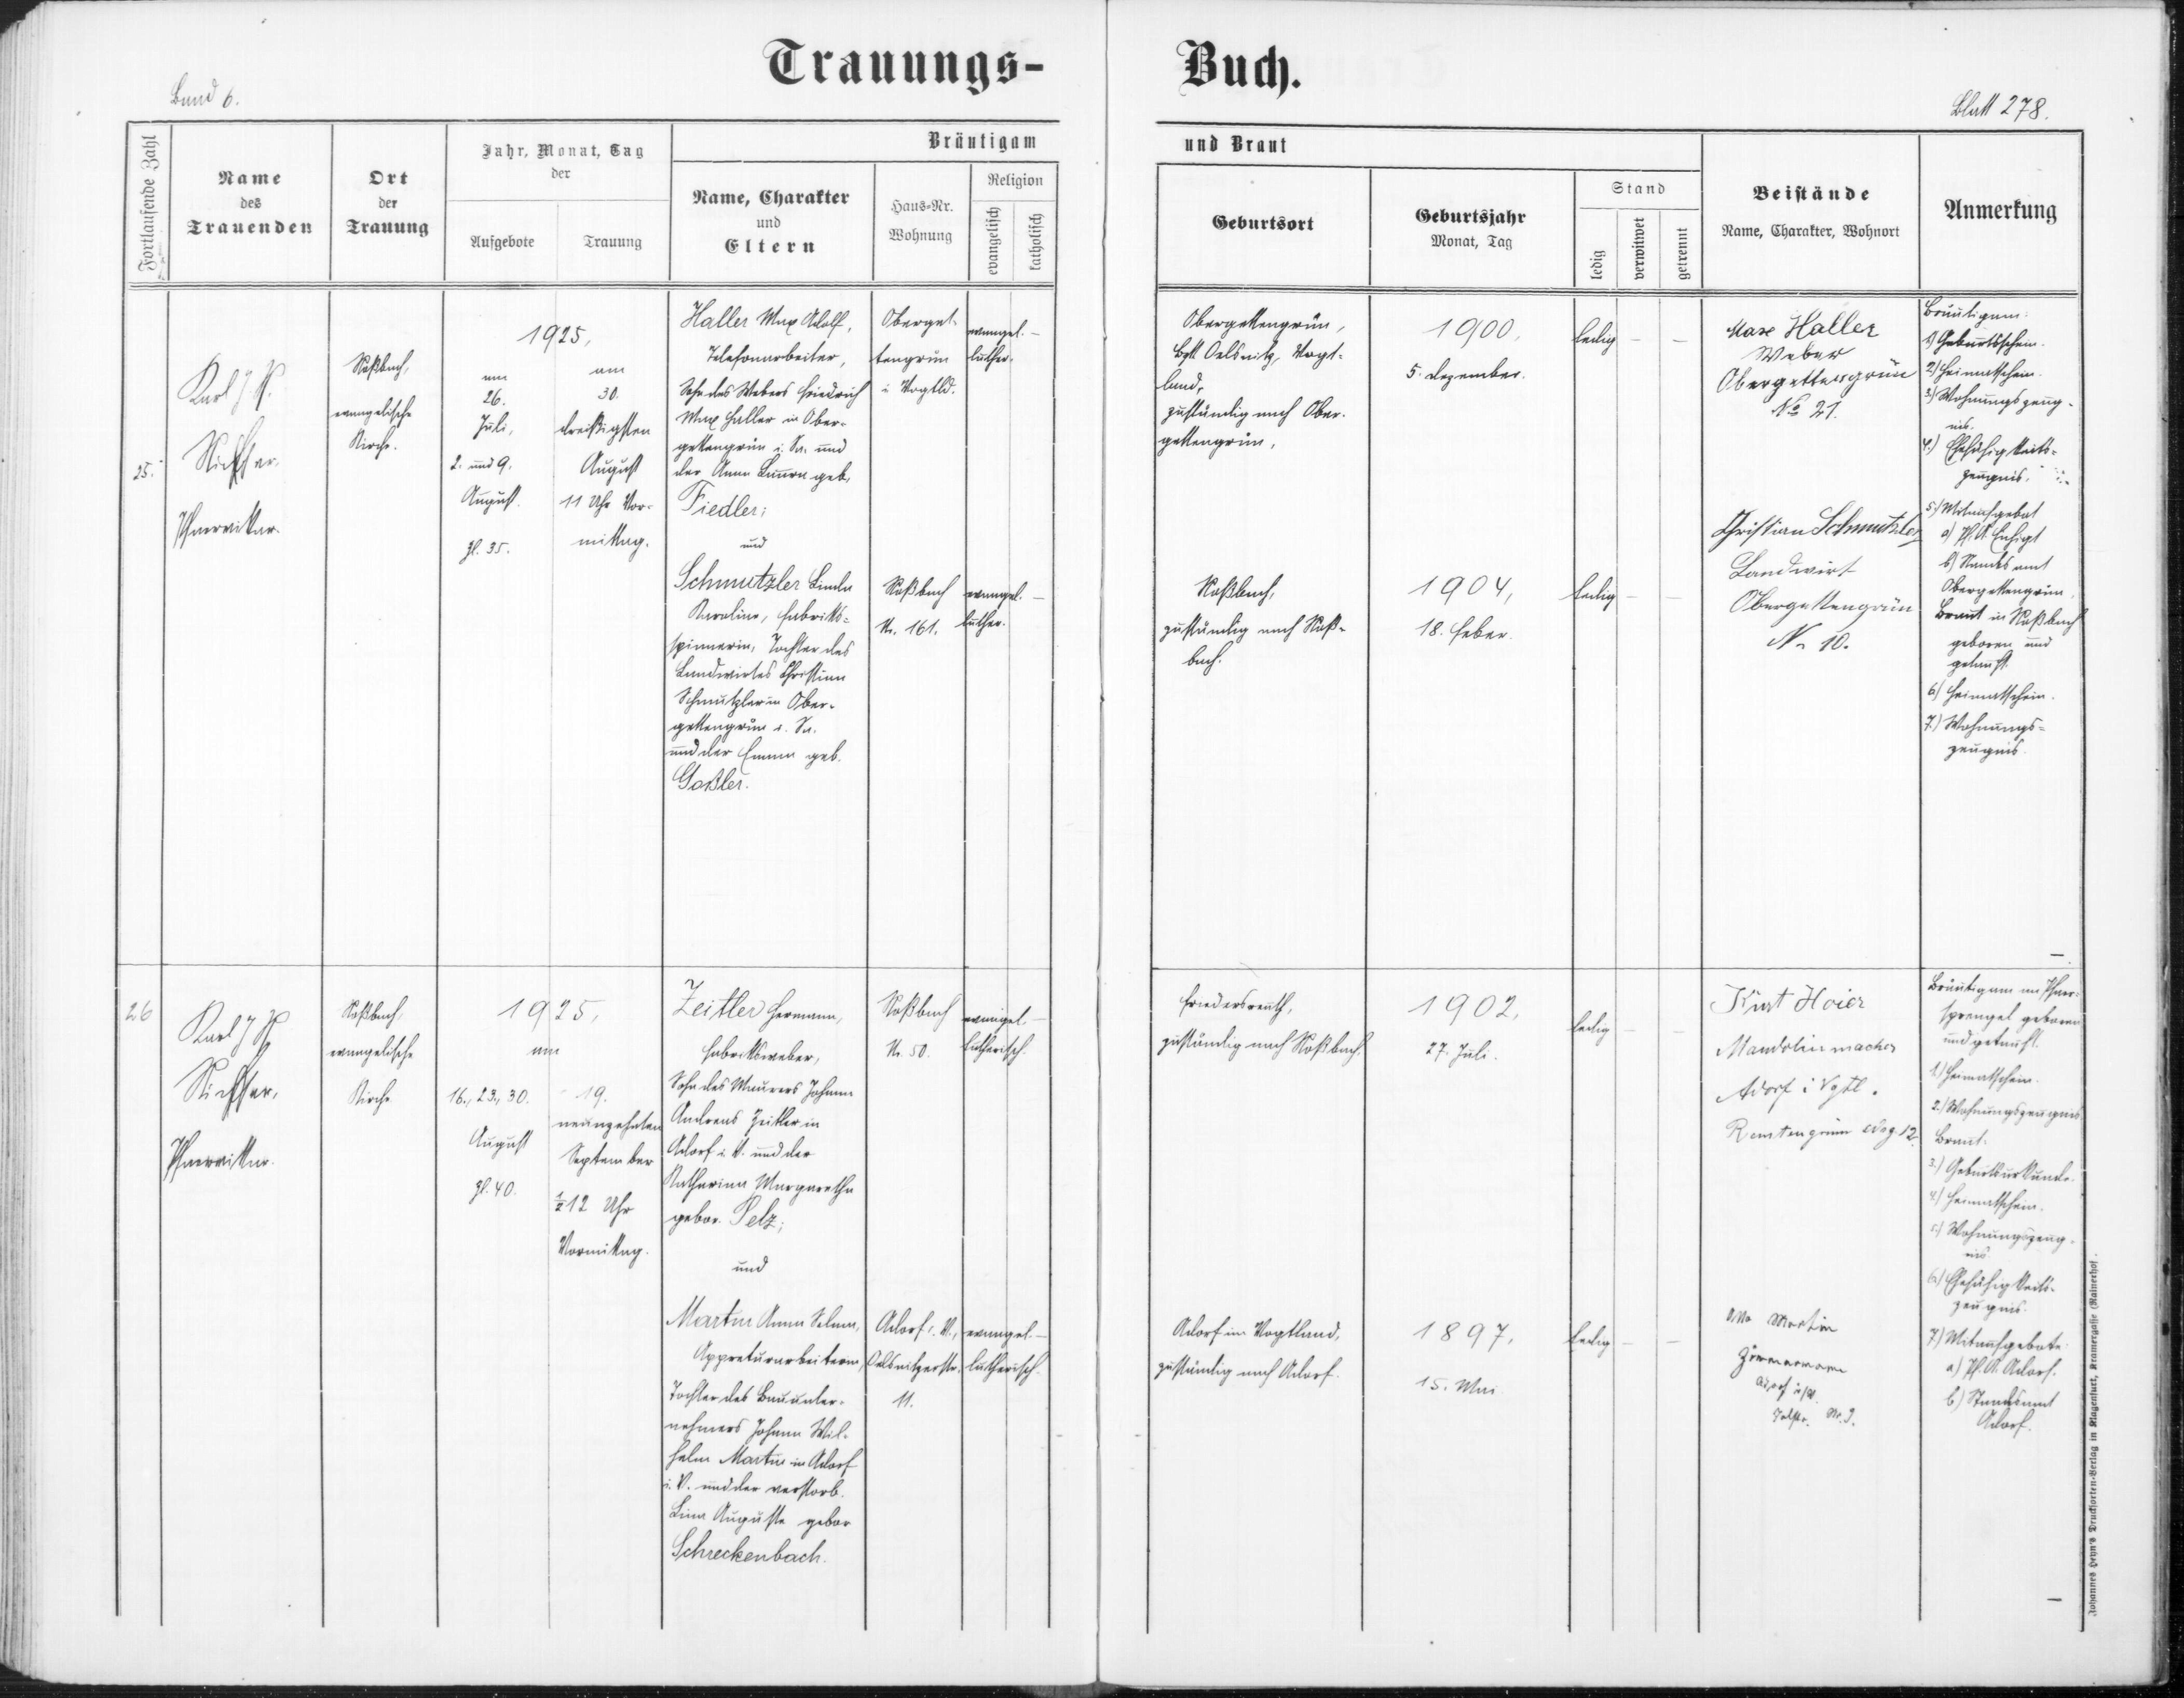 Trauungs-
Buch.
Band 6.
Blatt 278.
Fortlaufende Zahl
Name
des
Trauenden
Ort
der
Trauung
Jahr, Monat, Tag
der
Aufgebote
Trauung
Bräutigam
und Braut
Name, Charakter
und
Eltern
Haus-Nr.
Wohnung
Religion
evangelisch
katholisch
Geburtsort
Geburtsjahr
Monat, Tag
Stand
ledig
verwitwet
getrennt
Beistände
Name, Charakter, Wohnort
Anmerkung
25.
Karl
Pfarrvikar.
Roßbach,
evangelische
Kirche.
1925,
am
26.
Juli,
2. und 9.
August.
Zl. 35.
am
30.
dreißigsten
August
11 Uhr Vor-
mittag.
Haller Max Adolf,
Telefonarbeiter,
Sohn des Webers Friedrich
Max Haller in Ober-
gettengrün i. Sa. und
der Anna Laura geb.
Fiedler;
und
Schmutzler Linda
Karoline, Fabriks-
spinnerin, Tochter des
Landwirtes Christian
Schmutzler in Ober-
gettengrün i. Sa.
und der Emma geb.
Goßler.
Oberget-
tengrün
i. Vogtld.
Roßbach
Nr. 161.
evangel. –
luther.
evangel. –
luther.
Obergettengrün,
Bzk Oelsnitz, Vogt-
land,
zuständig nach Ober-
gettengrün,
Roßbach,
zuständig nach Roß-
bach.
1900,
5. Dezember.
1904,
18. Feber.
ledig – –
ledig – –
Max Haller
Weber
Obergettengrün
No 21.
Christian Schmutzler
Landwirt
Obergettengrün
N. 10.
Bräutigam:
1) Geburtsschein.
2) Heimatschein.
3) Wohnungszeug-
nis.
4.) Ehefähigkeits-
zeugnis.
5.) Mitaufgebot
a) Pf. A.
b) Standesamt
Obergettengrün.
Braut in Roßbach
geboren und
getauft.
6) Heimatschein.
7.) Wohnungs-
zeugnis.
26
Karl
Pfarrvikar.
Roßbach,
evangelische
Kirche
1925,
am
16., 23., 30.
August
Zl. 40.
19.
neunzehnten
September
½12 Uhr
Vormittag.
Zeitler Hermann,
Fabriksweber,
Sohn des Maurers Johann
Andreas Zeitler in
Adorf i. V. und der
Katharina Margaretha
gebor. Pelz;
und
Martin Anna Selma,
Appreturarbeiterin,
Tochter des Bauunter-
nehmers Johann Wil-
helm Martin in Adorf
i. V. und der verstorb.
Lina Auguste gebor
Schreckenbach.
Roßbach
Nr. 50.
Adorf i. V.,
Oelsnitzerstr.
11.
evangel. –
lutherisch.
evangel. –
lutherisch.
Friedersreuth,
zuständig nach Roßbach.
Adorf im Vogtland,
zuständig nach Adorf.
1902,
27. Juli.
1897,
15. Mai
ledig – –
ledig – –
Kurt Hoier
Mandolinmacher
Adorf i Vgtl.
Remtengrüner Weg 12.
Martin
Zimmermann
Adorf i/V.
Bräutigam im Pfarr-
sprengel geboren
und getauft.
1.) Heimatschein.
2.) Wohnungszeugnis
Braut:
3.) Geburtsurkunde.
4.) Heimatschein.
5.) Wohnungszeug-
nis.
6.) Ehefähigkeits-
zeugnis.
7.) Mitaufgebote
a) Pf. A. Adorf.
b) Standesamt
Adorf.
Johannes Heyn's Drucksorten-Verlag in Klagenfurt, Kramergasse (Rainerhof).